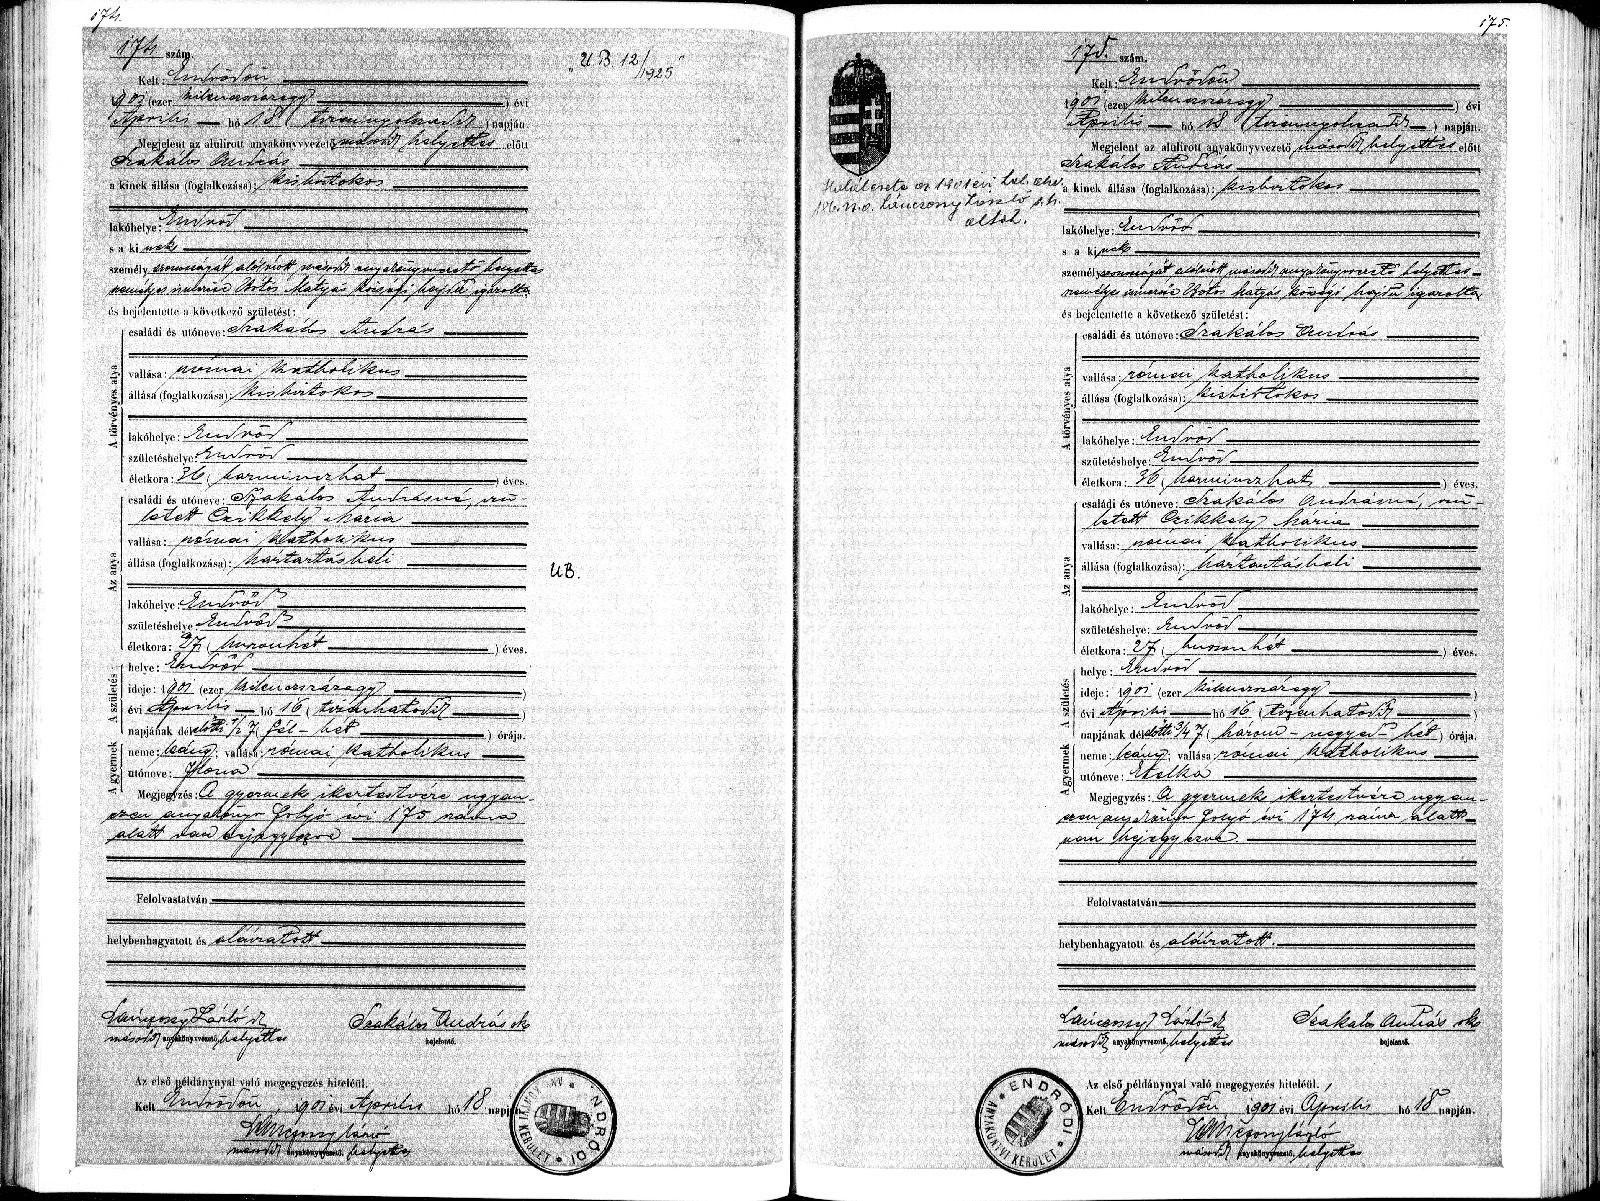 174.
174 szám.
"UB 12/1925"
Kelt: Endrődön
1901 (ezer kilenczszázegy) évi
Április hó 18 (tizennyolczadik) napján.
Megjelent az alulirott anyakönyvvezető második helyettes előtt
Szakálos András
a kinek állása (foglalkozása): kisbirtokos
lakóhelye: Endrőd
s a kinek
személyazonosságát alólirott második anyakönyvvezető helyettes
személyes ismerőse Botos Mátyás községi hajdu igazolta,
és bejelentette a következő születést:
A törvényes atya
családi és utóneve: Szakálos András
vallása: római katholikus
állása (foglalkozása): kisbirtokos
lakóhelye: Endrőd
születéshelye: Endrőd
életkora: 36 (harminczhat) éves.
Az anya
családi és utóneve: Szakálos Andrásné, szü-
letett Czikkely Mária
vallása: római katholikus
állása (foglalkozása): háztartásbeli
UB.
lakóhelye: Endrőd
születéshelye Endrőd
életkora: 27 (huszonhét) éves.
A születés
helye: Endrőd
ideje: 1901 (ezer kilenczszázegy)
évi Április hó 16 (tizenhatodik)
napjának délelőtti 1/2 7 (fél-hét) órája.
A gyermek
neme: leány; vallása: római katholikus
utóneve: Ilona
Megjegyzés: A gyermek ikertestvére ugyan-
ezen anyakönyv folyó évi 175 száma
alatt van bejegyezve
Felolvastatván
helybenhagyatott és aláiratott
Láncsony László
Szakálos András sk
második anyakönyvvezető, helyettes
bejelentő.
Az első példánynyal való megegyezés hiteléül.
Kelt Endrődön 1901 évi Április hó 18 napján
Láncsony László
második anyakönyvvezető, helyettes
ENDRŐDI ANYAKÖNYVI KERÜLET
175.
175. szám.
Kelt: Endrődön
1901 (ezer kilenczszázegy) évi
Április hó 18 (tizennyolczadik) napján.
Megjelent az alulirott anyakönyvvezető, második helyettes előtt
Szakálos András
Halálesete az 1901 évi hal. akv.
Láncsony László s.h.
által.
a kinek állása (foglalkozása): kisbirtokos
lakóhelye: Endrőd
s a kinek
személyazonosságát alólirott második anyakönyvvezető helyettes
személyes ismerőse Botos Mátyás községi hajdu igazolta,
és bejelentette a következő születést:
A törvényes atya
családi és utóneve: Szakálos András
vallása: római katholikus
állása (foglalkozása): kisbirtokos
lakóhelye: Endrőd
születéshelye: Endrőd
életkora: 36 (harminczhat) éves.
Az anya
családi és utóneve: Szakálos Andrásné, szü-
letett Czikkely Mária
vallása: római katholikus
állása (foglalkozása): háztartásbeli
lakóhelye: Endrőd
születéshelye: Endrőd
életkora: 27 (huszonhét) éves.
A születés
helye: Endrőd
ideje: 1901 (ezer kilenczszázegy)
évi Április hó 16 (tizenhatodik)
napjának délelőtti 3/4 7 (három-negyed-hét) órája.
A gyermek
neme: leány; vallása: római katholikus
utóneve: Etelka
Megjegyzés: A gyermek ikertestvére ugyan-
ezen anyakönyv folyó évi 174 száma alatt
van bejegyezve.
Felolvastatván
helybenhagyatott és aláiratott.
Láncsony László
Szakálos András sk
második anyakönyvvezető, helyettes
bejelentő.
Az első példánynyal való megegyezés hiteléül.
Kelt Endrődön, 1901 évi Április hó 18 napján.
Láncsony László
második anyakönyvvezető, helyettes
ENDRŐDI ANYAKÖNYVI KERÜLET